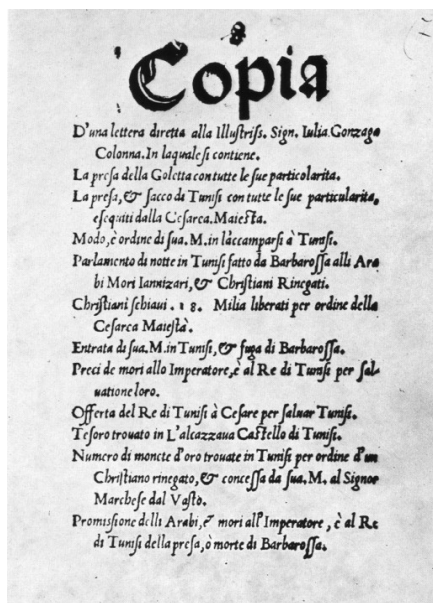 Copia
D'una lettera diretta alla Illustriss. Sign. Iulia Gonzaga
Colonna. In laquale si contiene.
La presa della Goletta con tutte le sue particolarita.
La presa, & sacco di Tunisi con tutte le sue particularita,
esequiti dalla Cesarca. Maiesta.
Modo, è ordine di sua. M. in l'accamparsi à Tunisi.
Parlamento di notte in Tunisi fatto da Barbarossa alli Ara
bi Mori Iannizari, & Christiani Rinegati.
Christiani schiaui. 18. Milia liberati per ordine della
Cesarca Maiestà.
Entrata di sua. M. in Tunisi, & fuga di Barbarossa.
Preci de mori allo Imperatore, è al Re di Tunisi per sal
uatione loro.
Offerta del Re di Tunisi à Cesare per saluar Tunisi.
Tesoro trouato in L'alcazzaua Castello di Tunisi.
Numero di monete d'oro trouate in Tunisi per ordine d'un
Christiano rinegato, & concessa da sua. M. al Signor
Marchese dal Vasto.
Promissione delli Arabi, & mori all'Imperatore, è al Re
di Tunisi della presa, ò morte di Barbarossa.